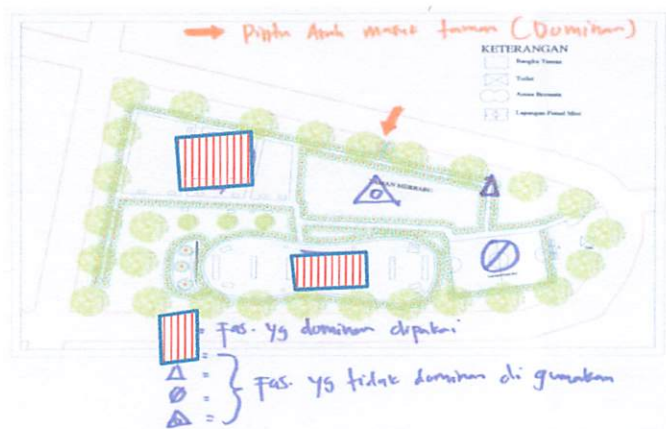 → Pintu Arah masuk taman (Dominan)
KETERANGAN
Bangku Taman
Toilet
Arena Bermain
Lapangan Futsal Mini
= Fas. yg dominan dipakai
=
△ =
Ø = } Fas. yg tidak dominan di gunakan
=